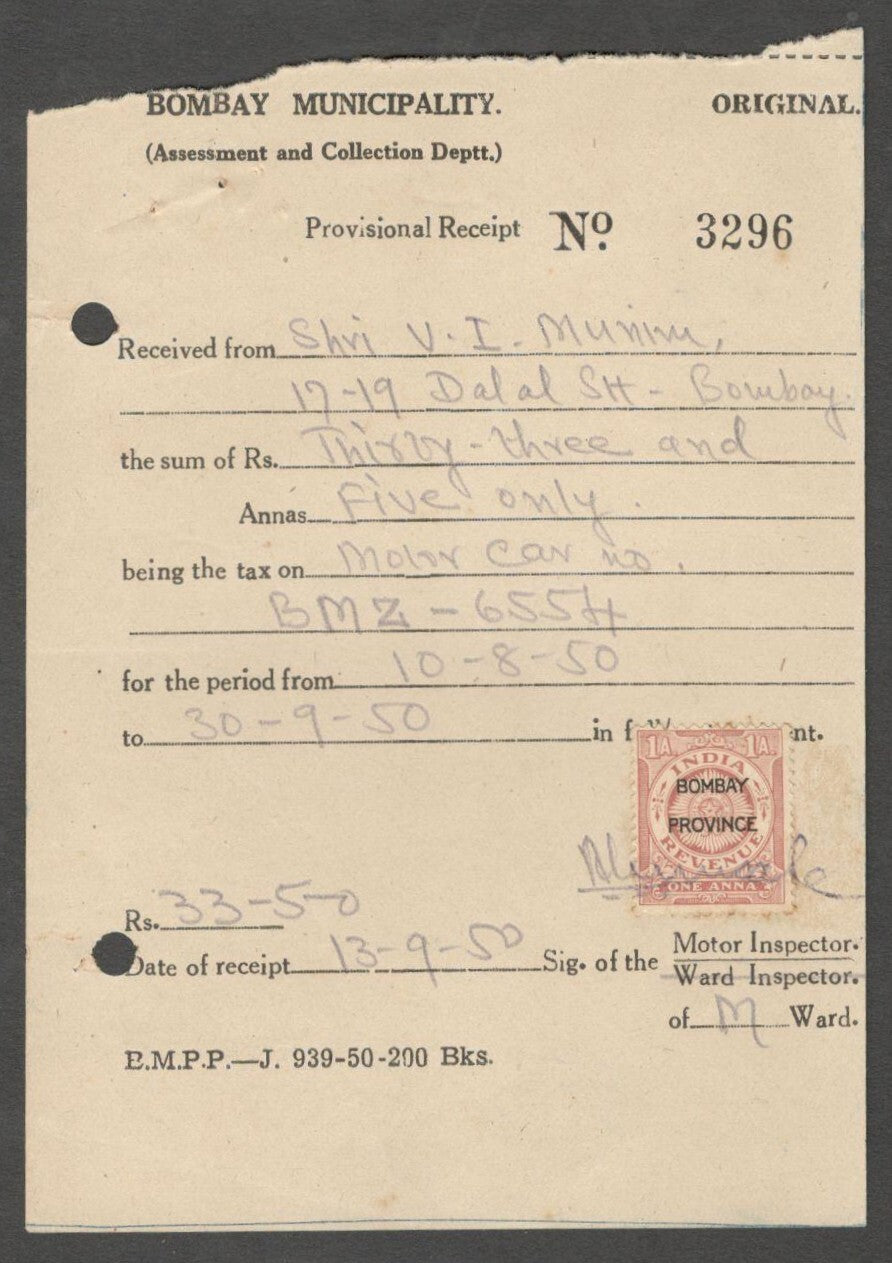 BOMBAY MUNICIPALITY. ORIGINAL.
(Assessment and Collection Deptt.)
Provisional Receipt No. 3296
Received from Shri V. I.
17-19 Dalal St - Bombay.
the sum of Rs. Thirty-three and
Annas Five only.
being the tax on Motor Car no.
BMZ - 6554
for the period from 10-8-50
to 30-9-50 in
1A. 1A.
INDIA
BOMBAY
PROVINCE
REVENUE
ONE ANNA
Rs. 33-5-0
Date of receipt 13-9-50 Sig. of the Motor Inspector.
Ward Inspector.
of M Ward.
B.M.P.P.—J. 939-50-200 Bks.